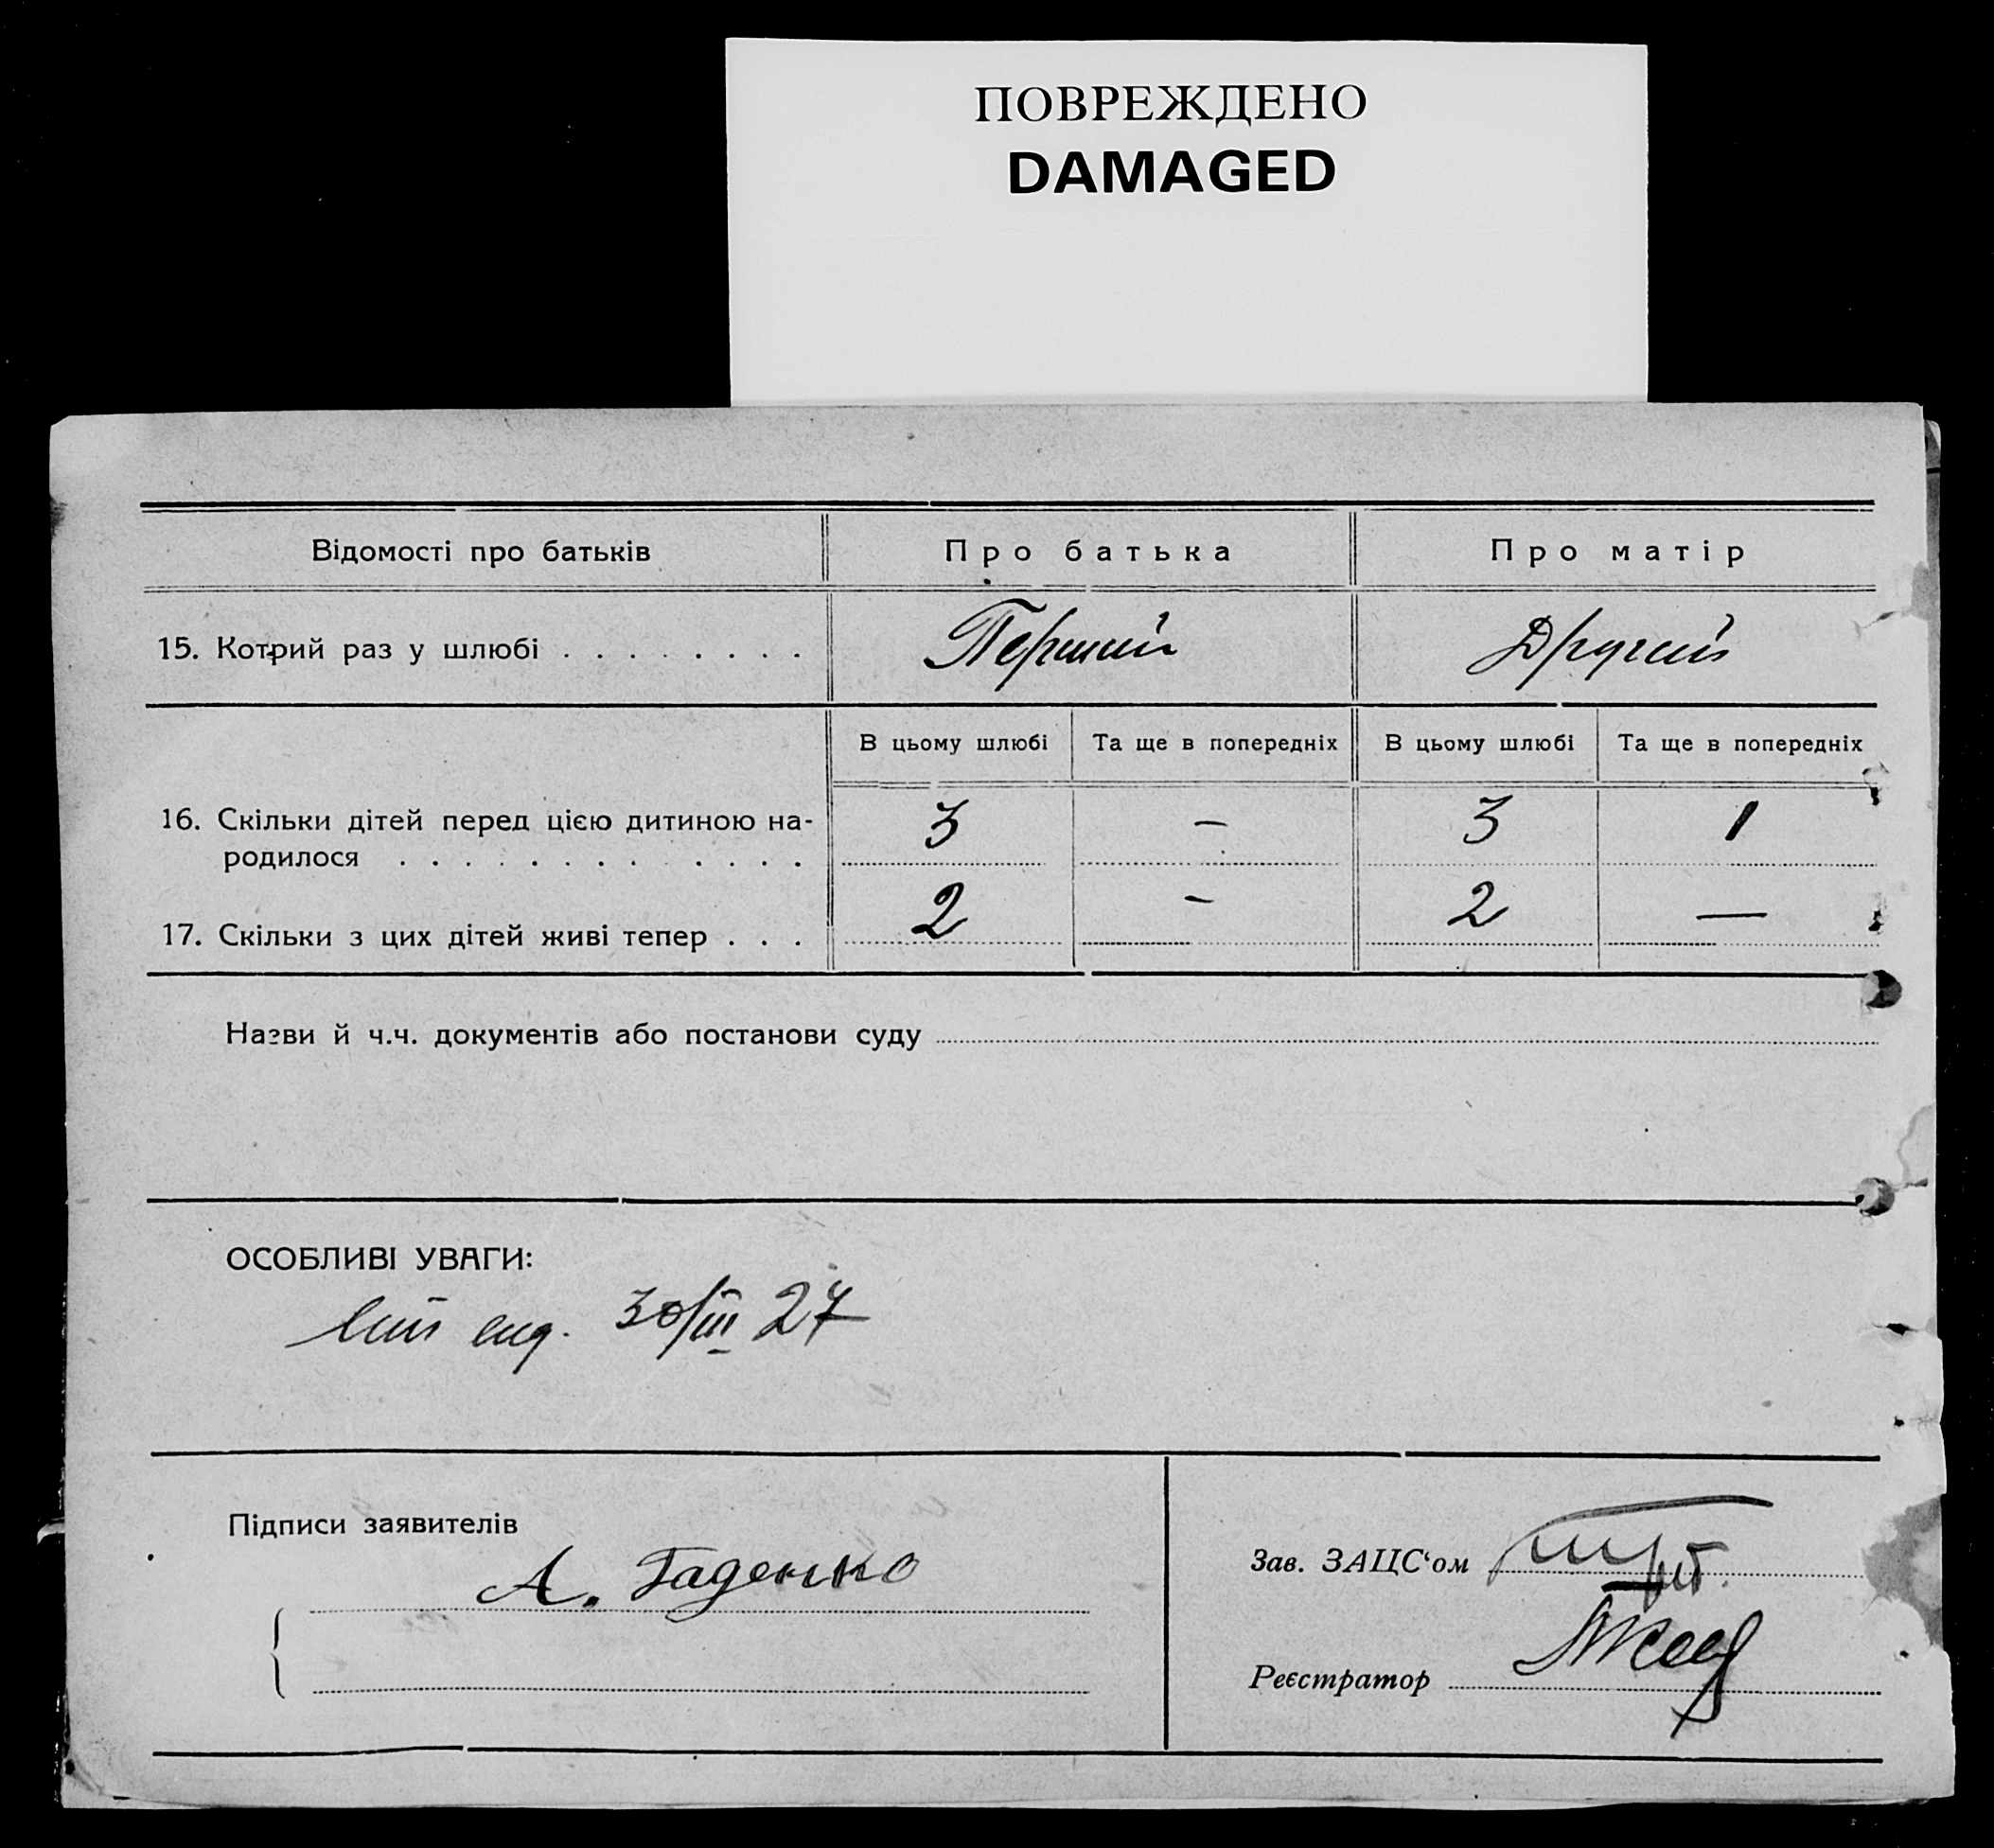 ПОВРЕЖДЕНО
DAMAGED
Відомості про батьків Про батька Про матір
15. Котрий раз у шлюбі . . . . . . . . Перший Другий
В цьому шлюбі Та ще в попередніх В цьому шлюбі Та ще в попередніх
16. Скільки дітей перед цією дитиною на- 3 – 3 1
родилося . . . . . . . . . . . . .
17. Скільки з цих дітей живі тепер . . . 2 – 2 —
Назви й ч.ч. документів або постанови суду
ОСОБЛИВІ УВАГИ:
30/III 27
Підписи заявителів
А. Гаденко
Зав. ЗАЦС‘ом
Реєстратор